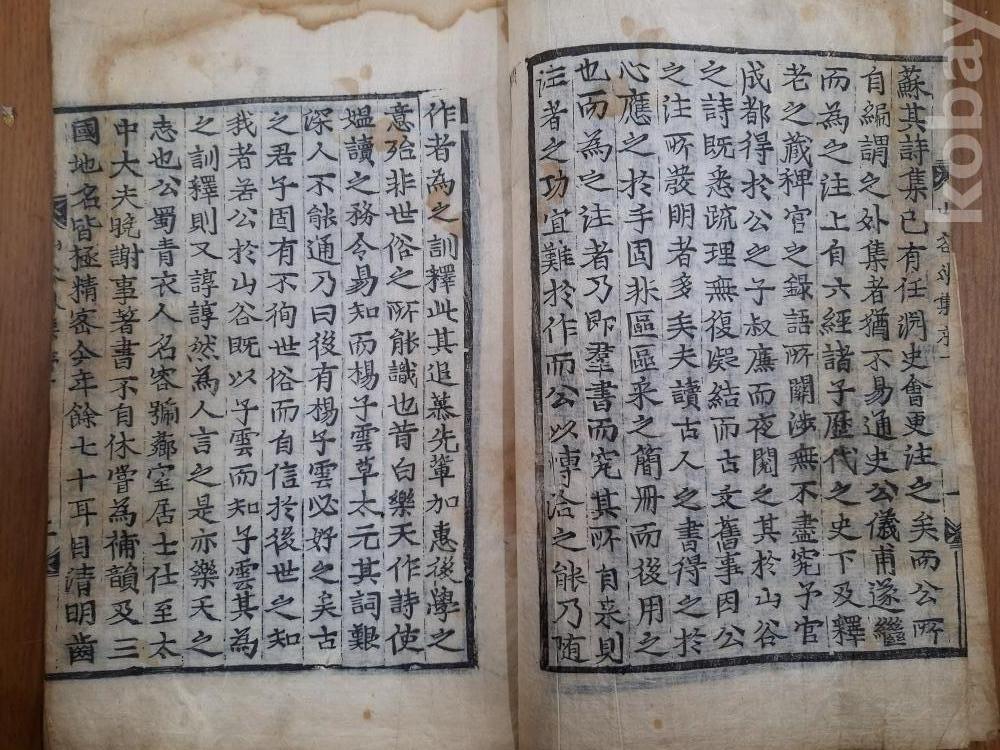 蘇其詩集已有任淵史會更注之矣而公所
自編謂之外集者猶不易通史公儀甫遂繼
而為之注上自六經諸子歷代之史下及釋
老之藏稗官之錄語所關涉無不盡究予官
成都得於公之子叔廉而夜閱之其於山谷
之詩既悉疏理無復凝結而古文舊事因公
之注所發明者多矣夫讀古人之書得之於
心應之於手固非區區采之簡冊而後用之
也而為之注者乃即羣書而究其所自來則
注者之功宜難於作而公以博洽之能乃隨
作者為之訓釋此其追慕先輩加惠後學之
意殆非世俗之所能識也昔白樂天作詩使
媼讀之務令易知而楊子雲草太元其詞艱
深人不能通乃曰後有楊子雲必好之矣古
之君子固有不徇世俗而自信於後世之知
我者若公於山谷既以子雲而知子雲其為
之訓釋則又諄諄然為人言之是亦樂天之
志也公蜀青衣人名容號薌室居士仕至太
中大夫晚謝事著書不自休嘗為補韻及三
國地名皆極精密今年餘七十耳目清明齒
山谷外集序一
kobay